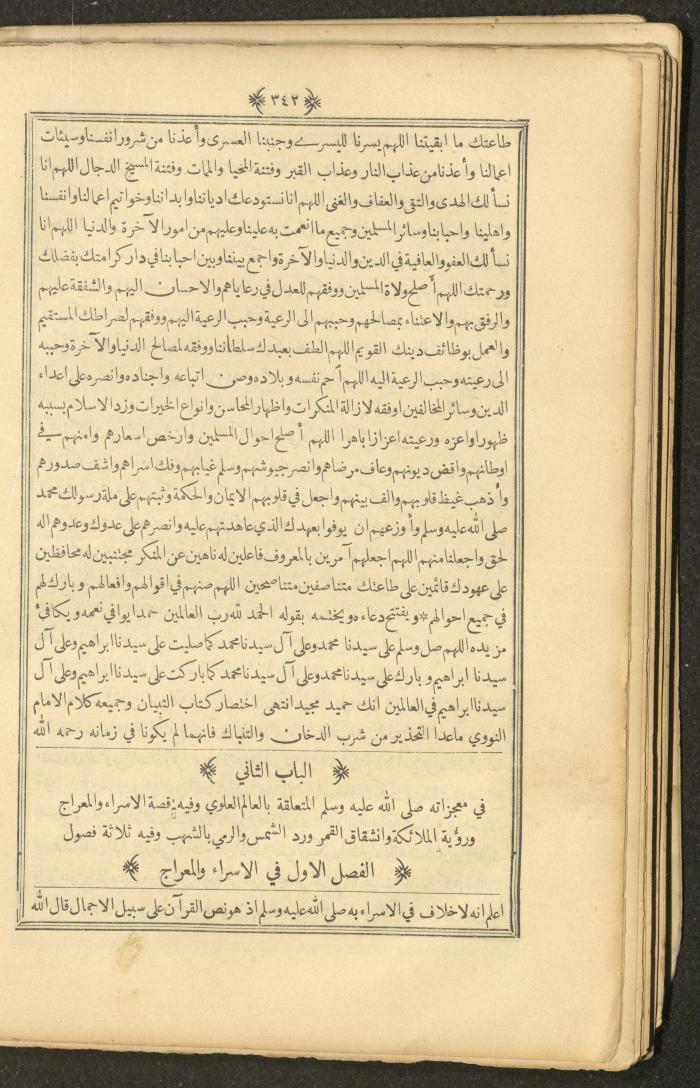 ٣٤٢
طاعتك ما ابقيتنا اللهم يسرنا لليسرى وجنبنا العسرى وأعذنا من شرور انفسنا وسيئات
اعمالنا وأعذنا من عذاب النار وعذاب القبر وفتنة المحيا والممات وفتنة المسيخ الدجال اللهم انا
نسألك الهدى والتقى والعفاف والغنى اللهم انا نستودعك ادياننا وابداننا وخواتيم اعمالنا وانفسنا
واهلينا واحبابنا وسائر المسلمين وجميع ما انعمت به علينا وعليهم من امور الآخرة والدنيا اللهم انا
نسألك العفو والعافية في الدين والدنيا والآخرة واجمع بيننا وبين احبابنا في دار كرامتك بفضلك
ورحمتك اللهم أصلح ولاة المسلمين ووفقهم للعدل في رعاياهم والاحسان اليهم والشفقة عليهم
والرفق بهم والاعتناء بمصالحهم وحببهم الى الرعية وحبب الرعية اليهم ووفقهم لصراطك المستقيم
والعمل بوظائف دينك القويم اللهم الطف بعبدك سلطاننا ووفقه لمصالح الدنيا والآخرة وحببه
الى رعيته وحبب الرعية اليه اللهم احم نفسه وبلاده وصن اتباعه واجناده وانصره على اعداء
الدين وسائر المخالفين اوفقه لازالة المنكرات واظهار المحاسن وانواع الخيرات وزد الاسلام بسببه
ظهورا واعزه ورعيته اعزازا باهرا اللهم أصلح احوال المسلمين وارخص اسعارهم وامنهم في
اوطانهم واقض ديونهم وعاف مرضاهم وانصر جيوشهم وسلم غيابهم وفك اسراهم واشف صدورهم
وأذهب غيظ قلوبهم والف بينهم واجعل في قلوبهم الايمان والحكمة وثبتهم على ملة رسولك محمد
صلى الله عليه وسلم وأوزعهم ان يوفوا بعهدك الذي عاهدتهم عليه وانصرهم على عدوك وعدوهم اله
لحق واجعلنا منهم اللهم اجعلهم آمرين بالمعروف فاعلين له ناهين عن المنكر مجتنبين له محافظين
على عهودك قائمين على طاعتك متناصفين متناصحين اللهم صنهم في اقوالهم وافعالهم وبارك لهم
في جميع احوالهم * ويفتتح دعاءه ويختمه بقوله الحمد لله رب العالمين حمدا يوافي نعمه ويكافئ
مزيده اللهم صل وسلم على سيدنا محمد وعلى آل سيدنا محمد كما صليت على سيدنا ابراهيم وعلى آل
سيدنا ابراهيم وبارك على سيدنا محمد وعلى آل سيدنا محمد كما باركت على سيدنا ابراهيم وعلى آل
سيدنا ابراهيم في العالمين انك حميد مجيد انتهى اختصار كتاب التبيان وجميعه كلام الامام
النووي ماعدا التحذير من شرب الدخان والتنباك فانهما لم يكونا في زمانه رحمه الله
الباب الثاني
في معجزاته صلى الله عليه وسلم المتعلقة بالعالم العلوي وفيه قصة الاسراء والمعراج
ورؤية الملائكة وانشقاق القمر ورد الشمس والرمي بالشهب وفيه ثلاثة فصول
الفصل الاول في الاسراء والمعراج
اعلم انه لاخلاف في الاسراء به صلى الله عليه وسلم اذ هو نص القرآن على سبيل الاجمال قال الله